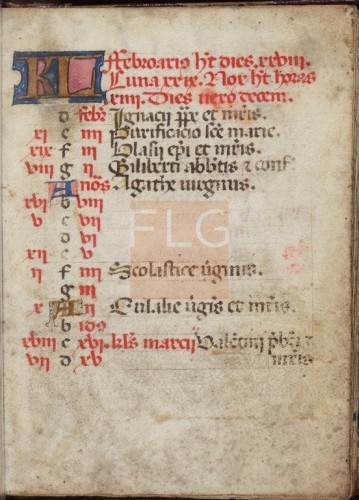 KL ffebroario ht dies. xxviii.
Luna xxix. Nox ht horas
xiiii. Dies uero decem.
d febr Ignacii ppe et mris.
xi e iiii Purificacio sce marie.
xix f iii Blasii epi et mris.
viii g ii Giliberti abbtis 2 conf
A nos Agathe uirginis.
xvi b viii
v c vii
d vi
xii e v
ii f iiii Scolastice ugınis.
g iii
x A ii Eulalie ugis et mris.
b idus
xviii c xvi. kls marcii Valentini pbri 2
vii d xv mris
FLG